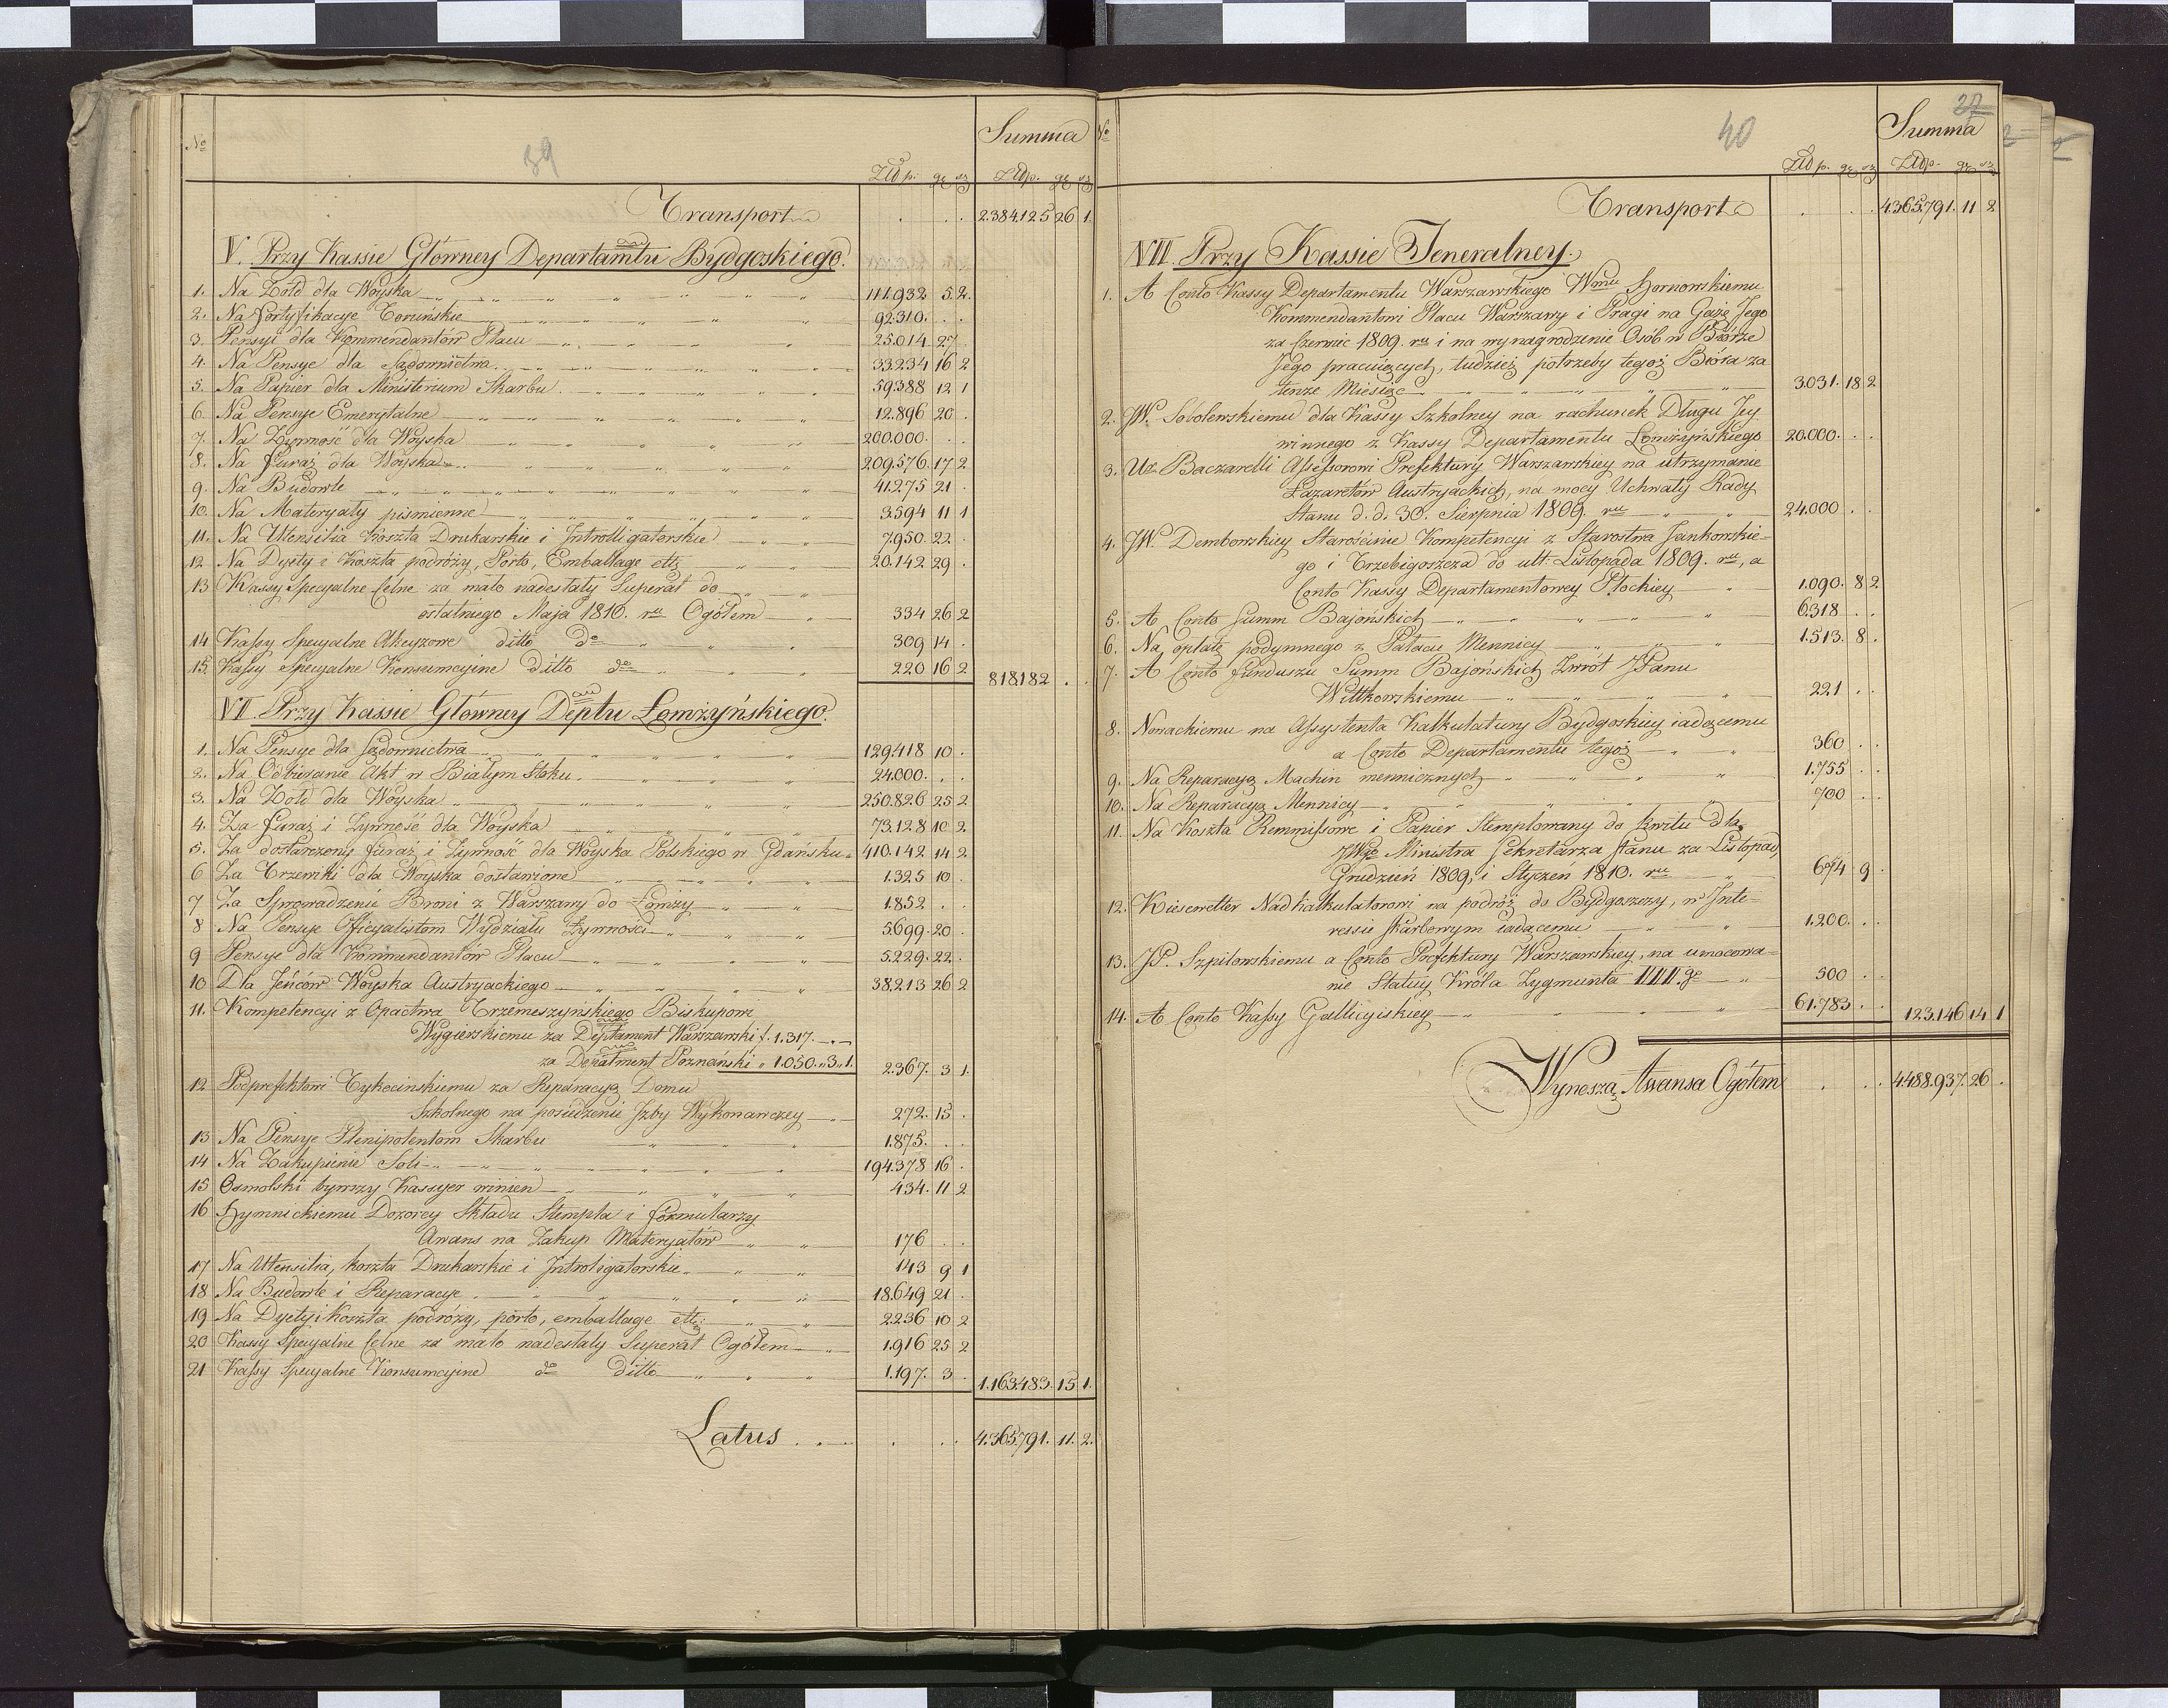 39
No Summa
Złdp. gr sz Złdp. gr sz
Transport . . . 2.384.125 26 1.
V. Przy Kassie Główney Departamtu Bydgoskiego.
1. Na Żołd dla Woyska 111.932 5 2.
2. Na fortyfikacye Toruńskie 92.310. . .
3. Pensyi dla Kommendantów Placu 25.014 27 .
4. Na Pensye dla Sądownictwa 33.234 16 2
5. Na Papier dla Ministerium Skarbu 59.388 12 1
6. Na Pensye Emerytalne 12.896 20 .
7. Na Żywność dla Woyska 200.000. . .
8. Na furaż dla Woyska 209.576. 17 2
9. Na Budowle 41.275 21 .
10. Na Materyały piśmienne 3.594 11 1
11. Na Utensilia Koszta Drukarskie i Introlligatorskie 7.950. 22 .
12 Na Dyety i Koszta podróży, Porto, Emballage etc 20.142 29 .
13 Kassy Specyalne Celne za mało nadesłały Superat do
ostatniego Maja 1810. ru Ogółem 334 26 2
14 Kassy Specyalne Akcyzowe ditto do 309 14 .
15. Kassy Specyalne Konsumcyine ditto do 220 16 2 818.182 . .
VI Przy Kassie Główney Deptu Łomżyńskiego.
1. Na Pensye dla Sądownictwa 129.418 10 .
2. Na Odbieranie Akt w Białym Stoku 24.000. . .
3. Na Żołd dla Woyska 250.826 25 2
4. Za furaż i Żywność dla Woyska 73.128 10 2
5. Za dostarczony furaż i Żywność dla Woyska Polskiego w Gdańsku 410.142 14 2
6 Za Trzewiki dla Woyska dostawione 1.325 10 .
7 Za Sprowadzenie Broni z Warszawy do Łomży 1.852 . .
8 Na Pensye Oficyalistom Wydziału Żywności 5.699 20 .
9 Pensye dla Kommendantów Placu 5.229. 22 .
10 Dla Jeńców Woyska Austryackiego 38.213 26 2
11. Kompetencyi z Opactwa Trzemeszyńskiego Biskupowi
Wygierskiemu za Deptament Warszawski f. 1.317. — —
za Depatment Poznański „ 1.050. „ 3 „ 1. 2.367. 3 1.
12 Podprefektowi Tykocinskiemu za Reparacyą Domu
Szkolnego na posiedzenie Izby Wykonawczey 272. 15 .
13 Na Pensye Plenipotentom Skarbu 1.875. . .
14 Na Zakupienie Soli 194.378 16 .
15 Osmolski bywszy Kassyer winien 434. 11 2
16 Hymnickiemu Dozorcy Składu Stempla i formularzy
Awans na Zakup Materyałów 176 . .
17 Na Utensilia, koszta Drukarskie i Introligatorskie 143 9 1
18 Na Budowle i Reparacye 18.649 21 .
19 Na Dyety i Koszta podróży, porto, emballage etc: 2.236 10 2
20 Kassy Specyalne Celne za mało nadesłały Superat Ogółem 1.916 25 2
21 Kassy Specyalne Konsumcyine do ditto 1.197. 3 . 1.163.483. 15 1.
Latus . . . 4.365.791. 11. 2.
40 27
No Summa
Złdp. gr sz Złdp. gr sz
Transport . . . 4.365.791. 11 2
VII Przy Kassie Jeneralney.
1. A Conto Kassy Departamentu Warszawskiego Wmu Hornowskiemu
Kommendantowi Placu Warszawy i Pragi na Gażę Jego
za Czerwiec 1809. ru i na wynagrodzenie Osób w Biórze
Jego pracuiących, tudzież potrzeby tegoż Bióra za
tenże Miesiąc 3.031. 18 2
2. JW. Sobolewskiemu dla Kassy Szkolney na rachunek Długu Jey
winnego z Kassy Departamentu Łomżyńskiego 20.000. . .
3. Ur. Baczarelli Assessorowi Prefektury Warszawskiey na utrzymanie
Lazaretów Austryackich, na mocy Uchwały Rady
Stanu d. d. 30. Sierpnia 1809. ru 24.000 . .
4. JW. Dembowskiey Starościnie Kompetencyi z Starostwa Jankowskie-
go i Trzebiegoszcza do ult: Listopada 1809. ru, a
Conto Kassy Departamentowey Płockiey 1.090. 8 2
5. A Conto Summ Bajońskich 6.318 . .
6. Na opłatę podymnego z Pałacu Mennicy 1.513. 8 .
7. A Conto funduszu Summ Bajońskich Zwrót JPanu
Wittkowskiemu 221 . .
8. Nowackiemu na Assystenta Kalkulatury Bydgoskiey iadącemu
a Conto Departamentu tegoż 360 . .
9. Na Reparacyą Machin menniczych 1.755 . .
10. Na Reparacyą Mennicy 700 . .
11. Na Koszta Remmissowe i Papier Stemplowany do kwitu dla
JWgo Ministra Sekretarza Stanu za Listopad,
Grudzień 1809, i Styczeń 1810. ru 674 9 .
12. Kiesewetter Nadkalkulatorowi na podróż do Bydgoszczy, w Inte-
ressie skarbowym iadącemu 1.200. . .
13. JP. Szpilowskiemu a Conto Prefektury Warszawskiey, na umocowa-
nie Statuy Króla Zygmunta IIII. go 500 . .
14. A Conto Kassy Gallicyiskiey 61.783 . . 123.146 14 1
Wynoszą Awansa Ogółem . . . 4.488.937. 26 .